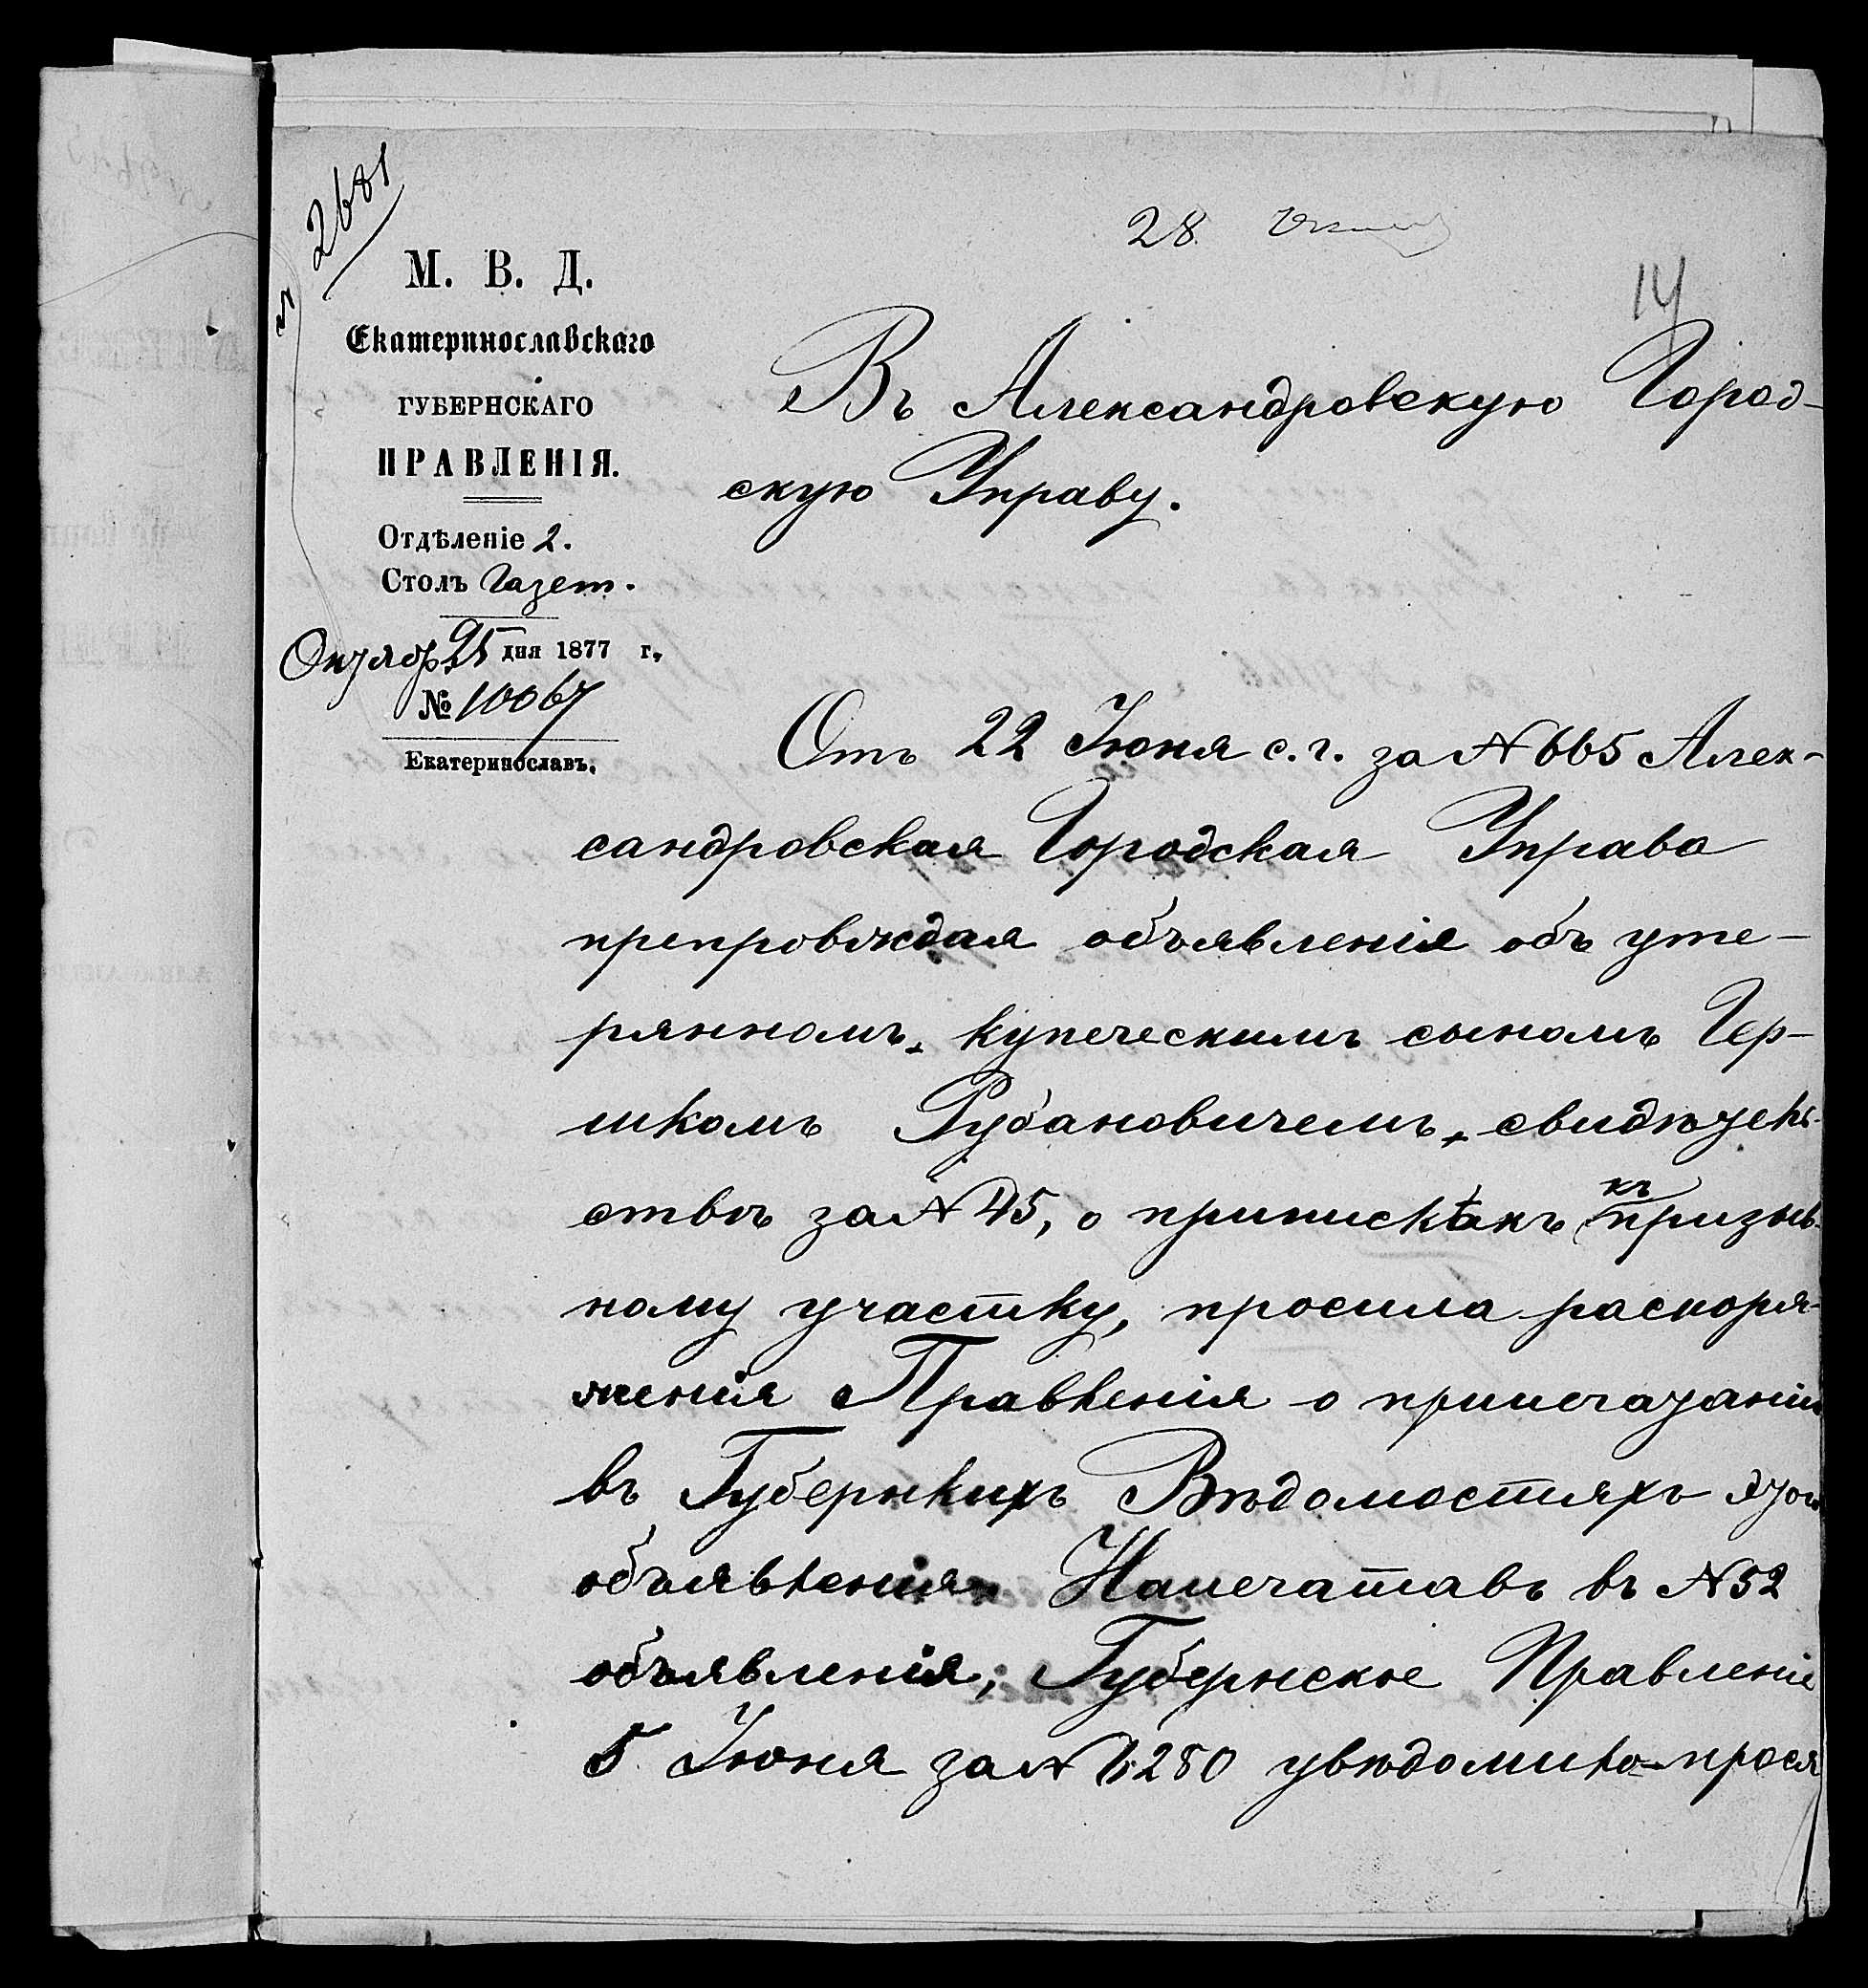 2681
28
14
М. В. Д.
Екатеринославскаго
ГУБЕРНСКАГО
ПРАВЛЕНІЯ.
Отдѣленіе 2.
Столъ Газет.
Октябр. 25 дня 1877 г.
№ 10067
Екатеринославъ.
Въ Александровскую Город-
скую Управу.
Отъ 22 Іюня с. г. за № 665 Алек-
сандровская Городская Управа
препровождая объявленія объ уте-
рянномъ купеческимъ сыномъ Гер-
шкомъ Рубановичемъ свидѣтель-
ствѣ за № 45, о припискѣ къ призыв-
ному участку, просила распоря-
женія Правленія о припечатаніи
въ Губернкихъ Вѣдомостяхъ этои
объявленія. Напечатавъ въ № 52
объявленія, Губернское Правленіе
5 Іюня за № 6280 увѣдомило прося